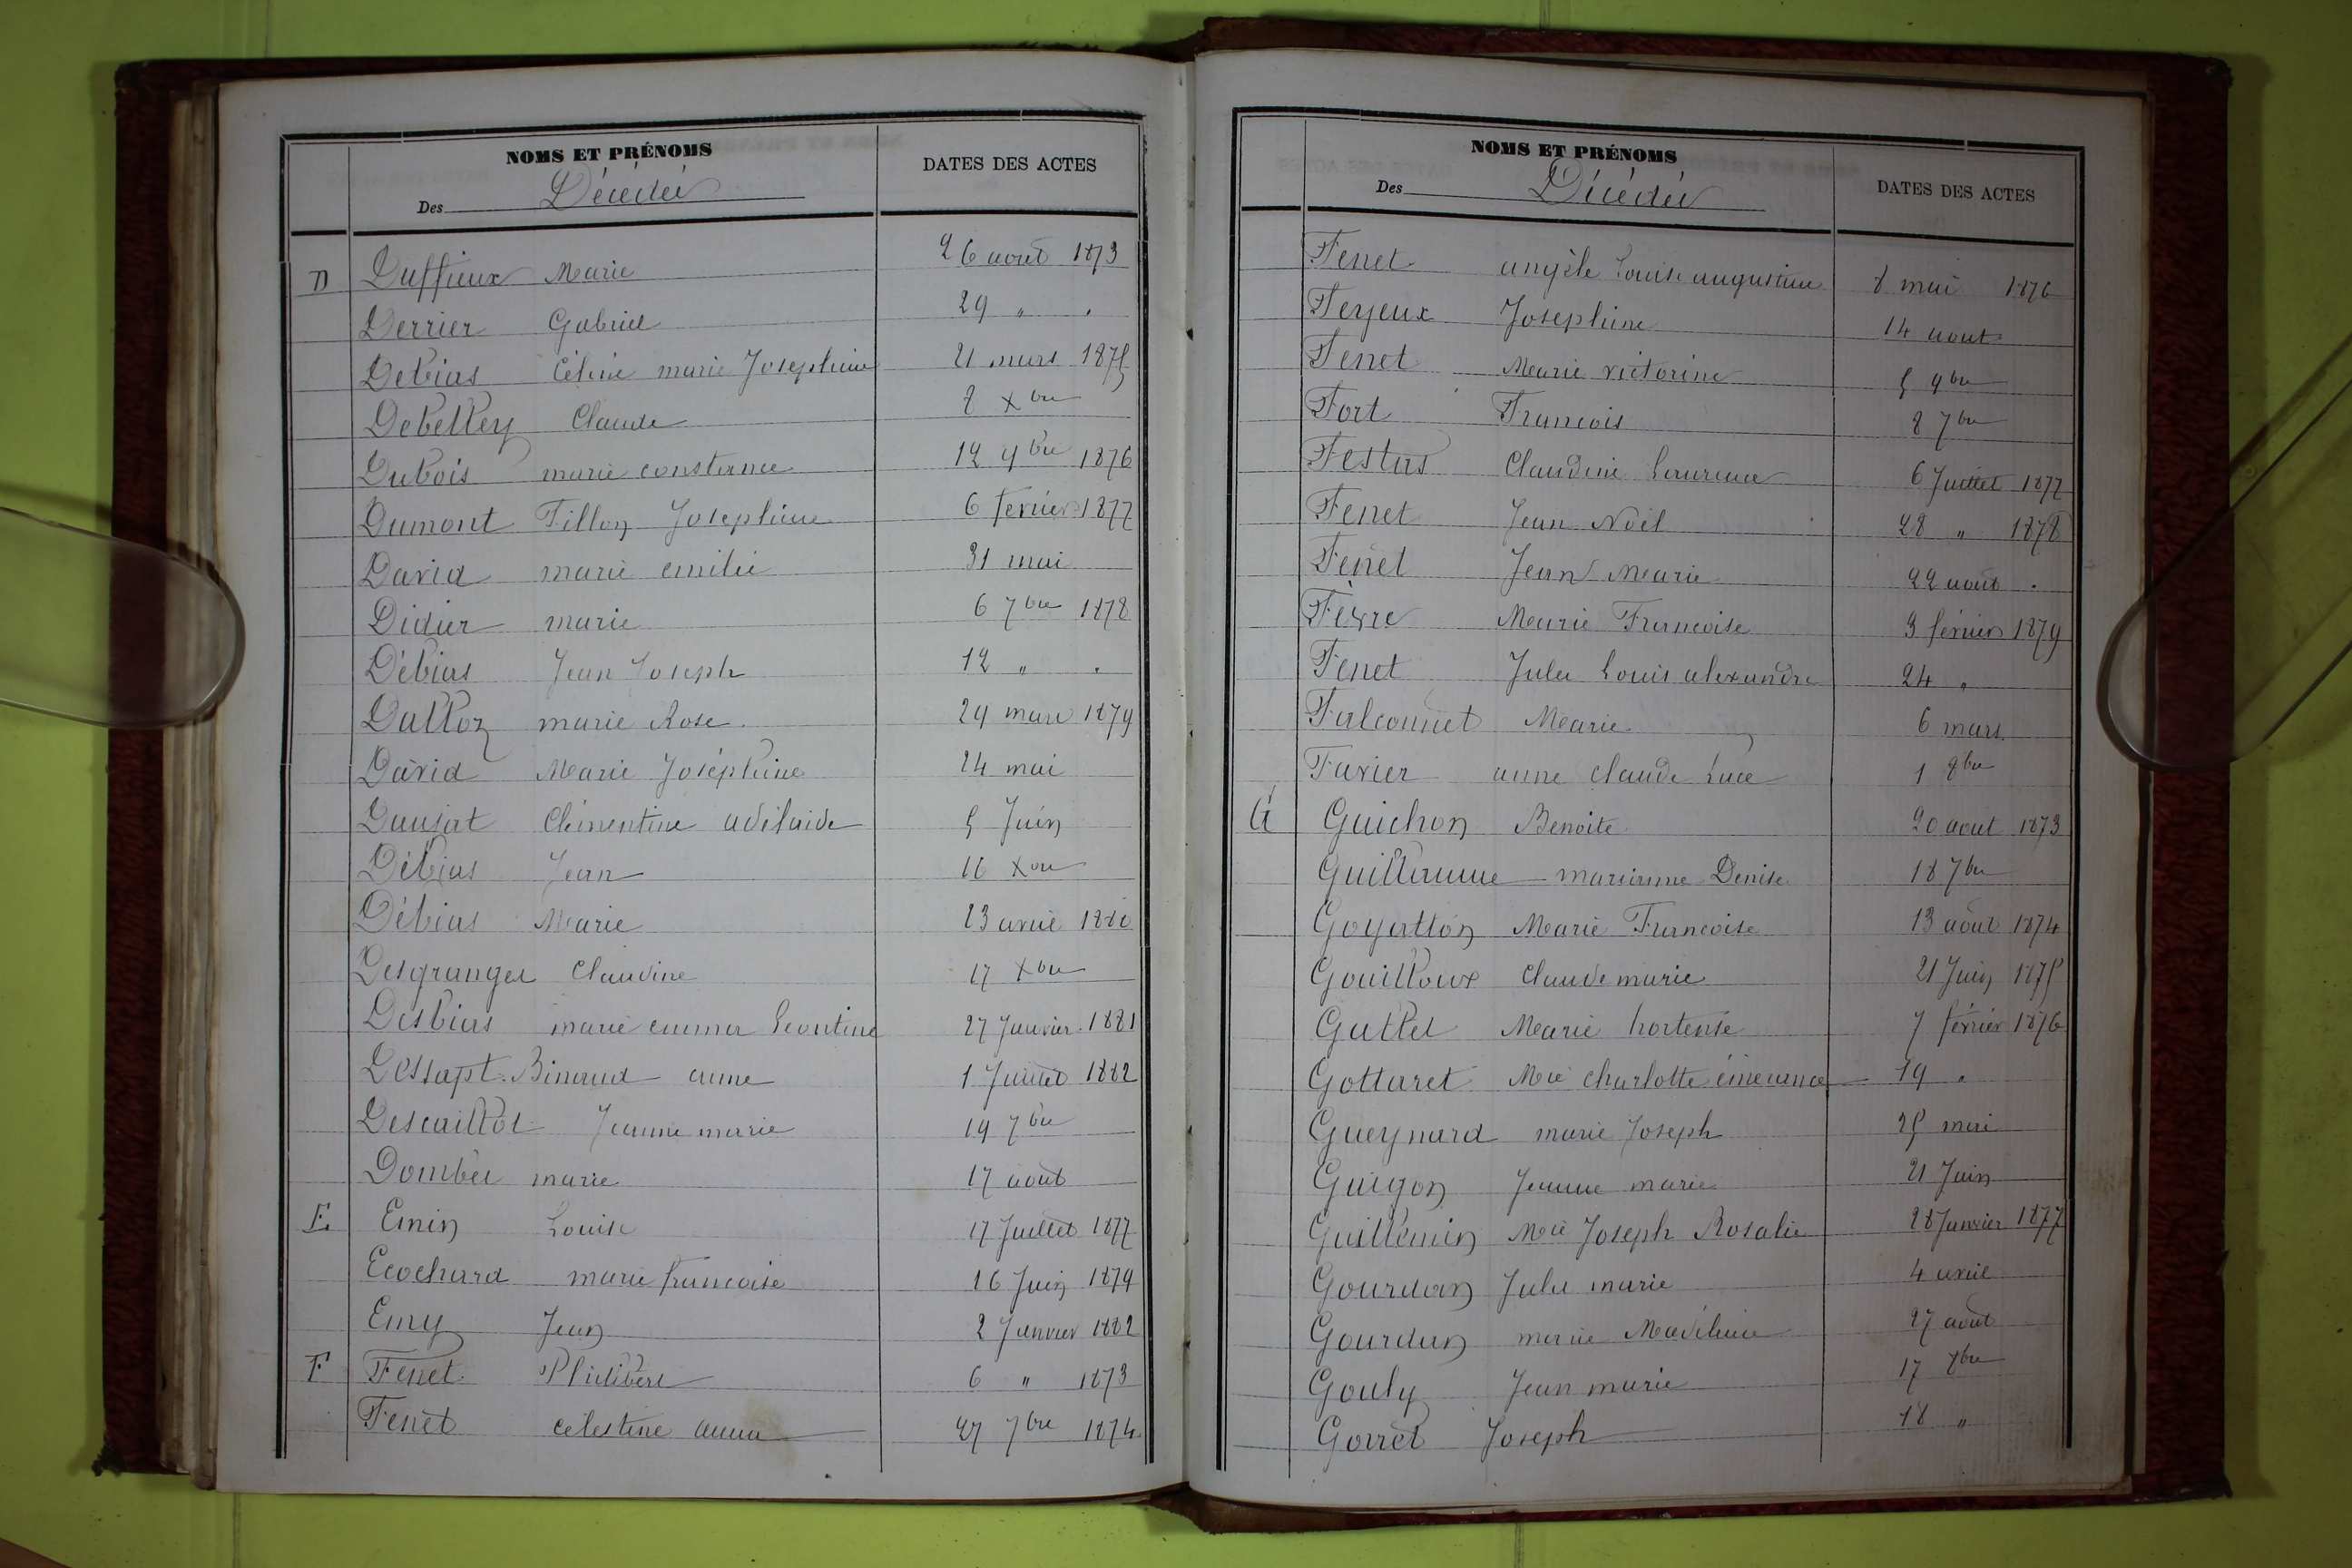 NOMS ET PRÉNOMS
Des Décédés
DATES DES ACTES
D Duffieux Marie 26 août 1873
Derrier Gabriel 29 " "
Debias Céline marie Josephine 21 mars 1875
Debelley Claude 2 Xbre
Dubois marie constance 12 9bre 1876
Dumont Fillon Josephine 6 fevrier 1877
David marie emilie 31 mai
Didier marie 6 7bre 1878
Débias Jean Joseph 12 " "
Dalloz marie Rose 29 mars 1879
David Marie Joséphine 24 mai
Daujat Clémentine adélaide 5 Juin
Débias Jean 16 Xbre
Débias Marie 23 avril 1880
Desgranges Claudine 17 Xbre
Desbias marie emma Leontine 27 Janvier 1881
Dessapt-Binaud anne 1 Juillet 1882
Descaillot Jeanne marie 19 7bre
Dombey marie 17 août
E Emin Louise 17 Juillet 1877
Ecochard marie francoise 16 Juin 1879
Emy Jean 2 Janvier 1882
F Fenet Philibert 6 " 1873
Fenet célestine anna 27 7bre 1874
NOMS ET PRÉNOMS
Des Décédés
DATES DES ACTES
Fenet angèle Louise augustine 8 mai 1876
Feyeux Josephine 14 aout
Fenet Marie victorine 5 9bre
Fort Francois 8 7bre
Festas Claudine Laurence 6 Juillet 1877
Fenet Jean Noël 28 " 1878
Fenet Jean Marie 22 août "
Fèvre Marie Francoise 3 février 1879
Fenet Jules Louis alexandre 24 "
Falconnet Marie 6 mars
Favier anne claude Luce 1 8bre
G Guichon Benoite 20 aout 1873
Guillaume marianne Denise 18 7bre
Goyatton Marie Francoise 13 août 1874
Gouilloux Claude marie 21 Juin 1875
Gattet Marie hortense 7 février 1876
Gottaret Mie charlotte 19 "
Gueynard marie Joseph 25 mai
Guigon Jeanne marie 21 Juin
Guillemin Mie Joseph Rosalie 28 Janvier 1877
Gourdan Jules marie 4 avril
Gourdan marie 27 août
Gouly Jean marie 17 8bre
Gorret Joseph 18 "